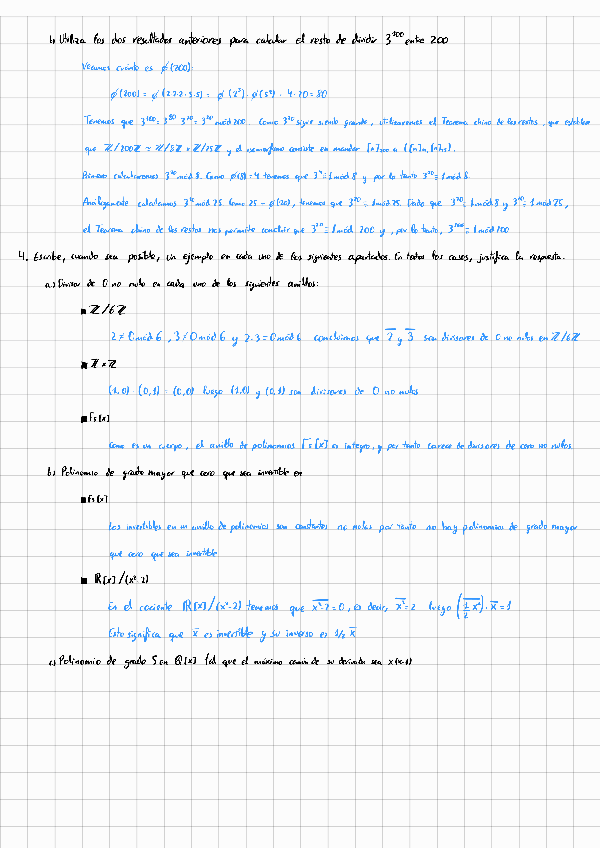 b) Utiliza los dos resultados anteriores para calcular el resto de dividir 3¹⁰⁰ entre 200
Veamos cuánto es ϕ(200):
ϕ(200) = ϕ(2·2·2·5·5) = ϕ(2³)·ϕ(5²) = 4·20 = 80
Tenemos que 3¹⁰⁰ = 3⁸⁰ 3²⁰ = 3²⁰ mod 200. Como 3²⁰ sigue siendo grande, utilizaremos el Teorema chino de los restos, que establece
que ℤ/200ℤ ≃ ℤ/8ℤ × ℤ/25ℤ y el isomorfismo consiste en mandar [n]₂₀₀ a ([n]₈,[n]₂₅).
Primero calcularemos 3²⁰ mod 8. Como ϕ(8)=4 tenemos que 3⁴=1 mod 8 y por lo tanto 3²⁰=1 mod 8.
Análogamente calculamos 3²⁰ mod 25. Como 25 - ϕ(20), tenemos que 3²⁰ = 1 mod 25. Dado que 3²⁰=1 mod 8 y 3²⁰=1 mod 25,
el Teorema chino de los restos nos permite concluir que 3²⁰=1 mod 200 y, por lo tanto, 3¹⁰⁰=1 mod 200
4. Escribe, cuando sea posible, un ejemplo en cada uno de los siguientes apartados. En todos los casos, justifica la respuesta.
a) Divisor de 0 no nulo en cada uno de los siguientes anillos:
■ ℤ/6ℤ
2≠0 mod 6, 3≠0 mod 6 y 2·3=0 mod 6 concluimos que 2̅ y 3̅ son divisores de 0 no nulos en ℤ/6ℤ
■ ℤ×ℤ
(1,0)·(0,1) = (0,0) luego (1,0) y (0,1) son divisores de 0 no nulos
■ F₅[x]
como es un cuerpo, el anillo de polinomios F₅[x] es íntegro, y por tanto carece de divisores de cero no nulos
b) Polinomio de grado mayor que cero que sea invertible en
■ F₅[x]
Los invertibles en un anillo de polinomios son constantes no nulas por tanto no hay polinomios de grado mayor
que cero que sea invertible
■ ℝ[x]/(x²-2)
En el cociente ℝ[x]/(x²-2) tenemos que x̅²̅-̅2̅=0, es decir, x̅²̅=2 luego (1/2 x̅)·x̅=1
Esto significa que x̅ es invertible y su inverso es 1/2 x̅
c) Polinomio de grado 5 en ℚ[x] tal que el máximo común de su derivada sea x(x-1)